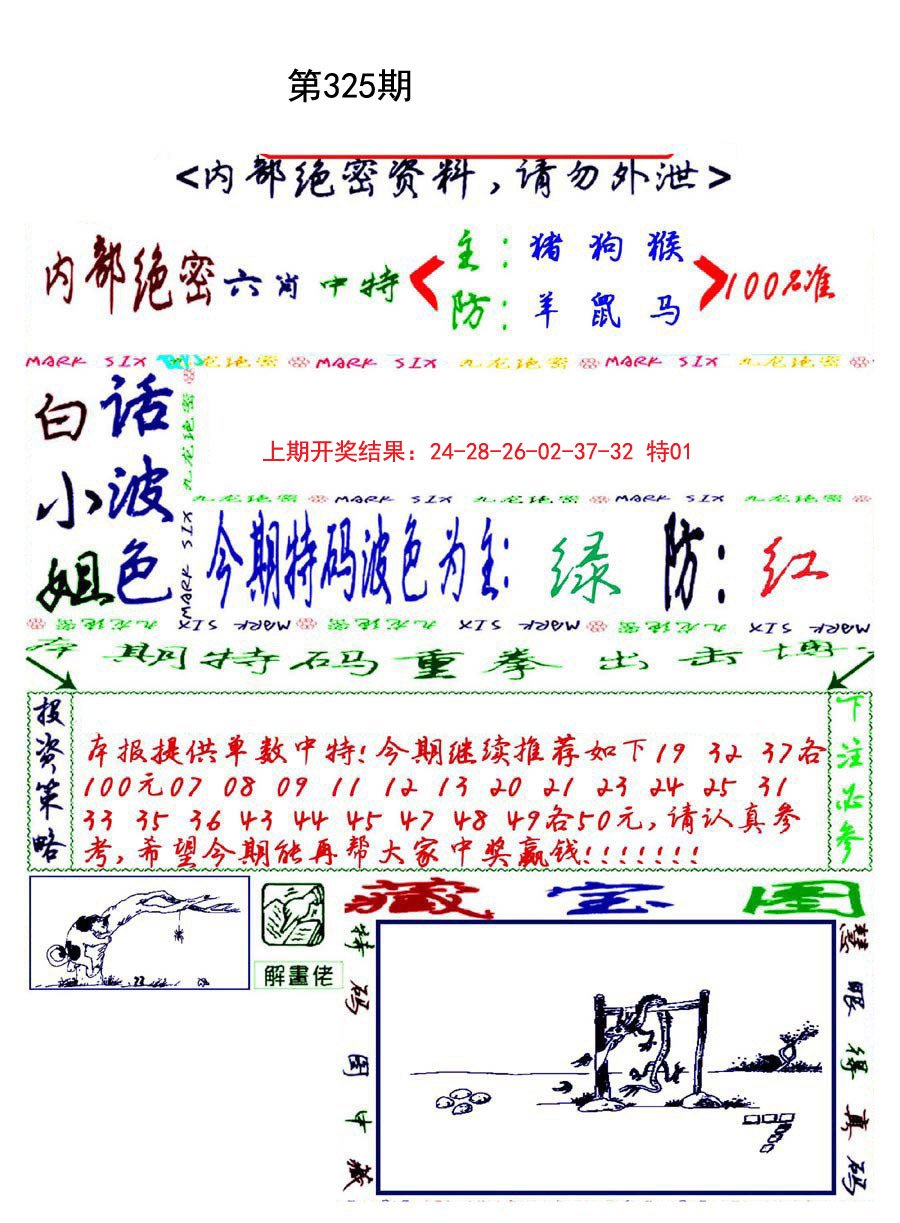 第325期
<内部绝密资料,请勿外泄>
内部绝密六肖中特
主:猪 狗 猴
防:羊 鼠 马
100%准
MARK SIX 九龙绝密 MARK SIX 九龙绝密 MARK SIX 九龙绝密
白话
小波
姐色
九龙绝密
MARK SIX
上期开奖结果：24-28-26-02-37-32 特01
九龙绝密 MARK SIX 九龙绝密 MARK SIX 九龙绝密
今期特码波色为主: 绿 防: 红
九龙绝密 MARK SIX 九龙绝密 MARK SIX 九龙绝密 MARK SIX
本期特码重拳出击博
投资策略
本报提供单数中特!今期继续推荐如下19 32 37各
100元07 08 09 11 12 13 20 21 23 24 25 31
33 35 36 43 44 45 47 48 49各50元,请认真参
考,希望今期能再帮大家中奖赢钱!!!!!!!
下注必参
解畫佬
藏宝图
特码图中藏
慧眼得真码